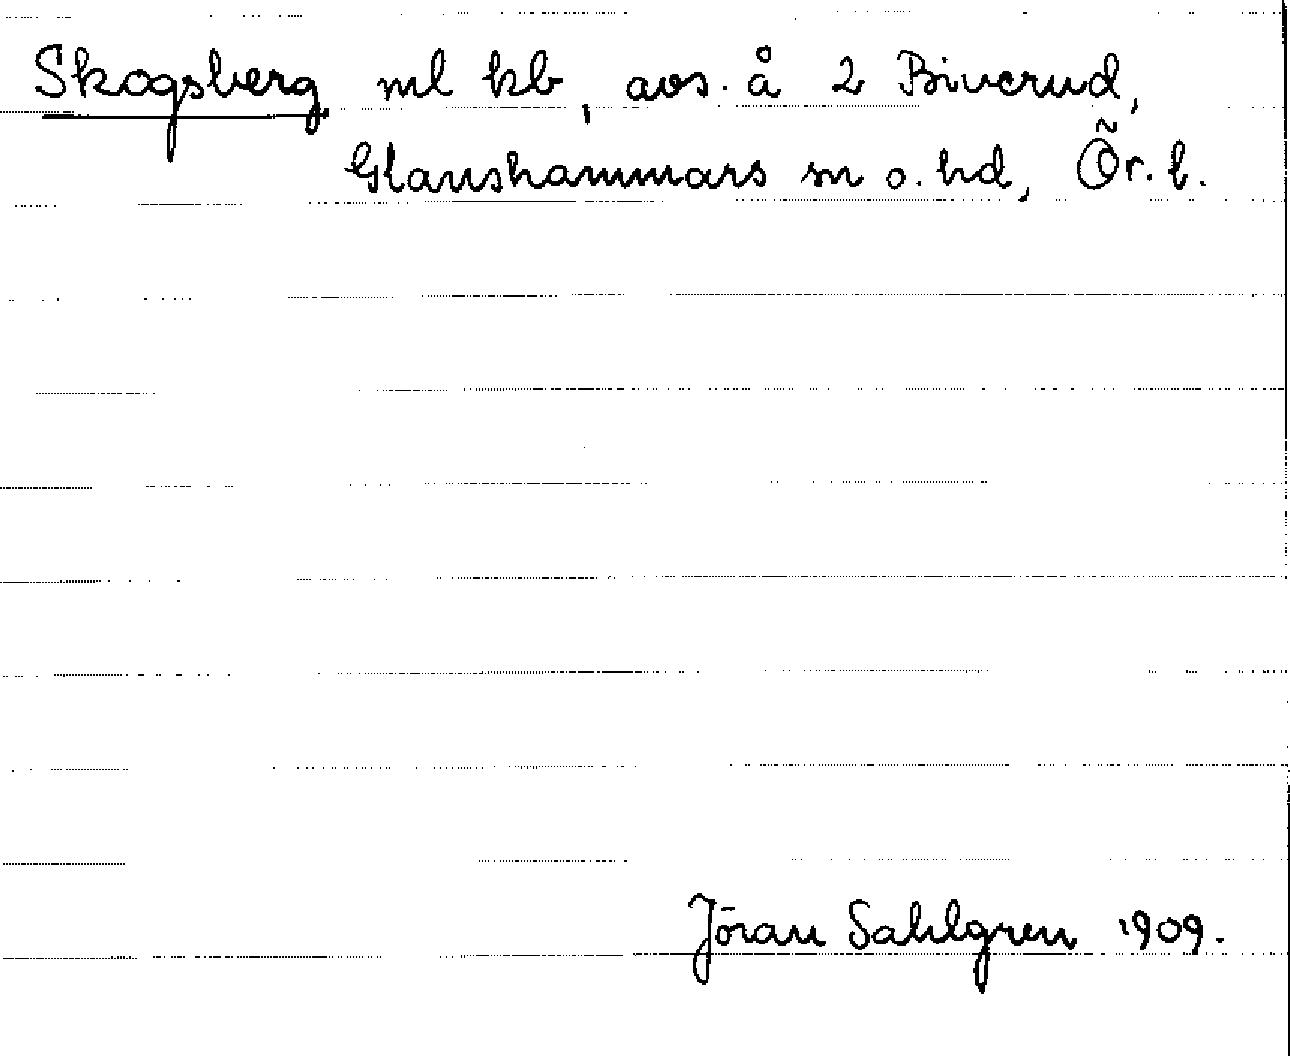 Skogsberg ml kb, avs. å 2 Biverud,
Glanshammars sn o. hd, Ör. l.
Jöran Sahlgren 1909.